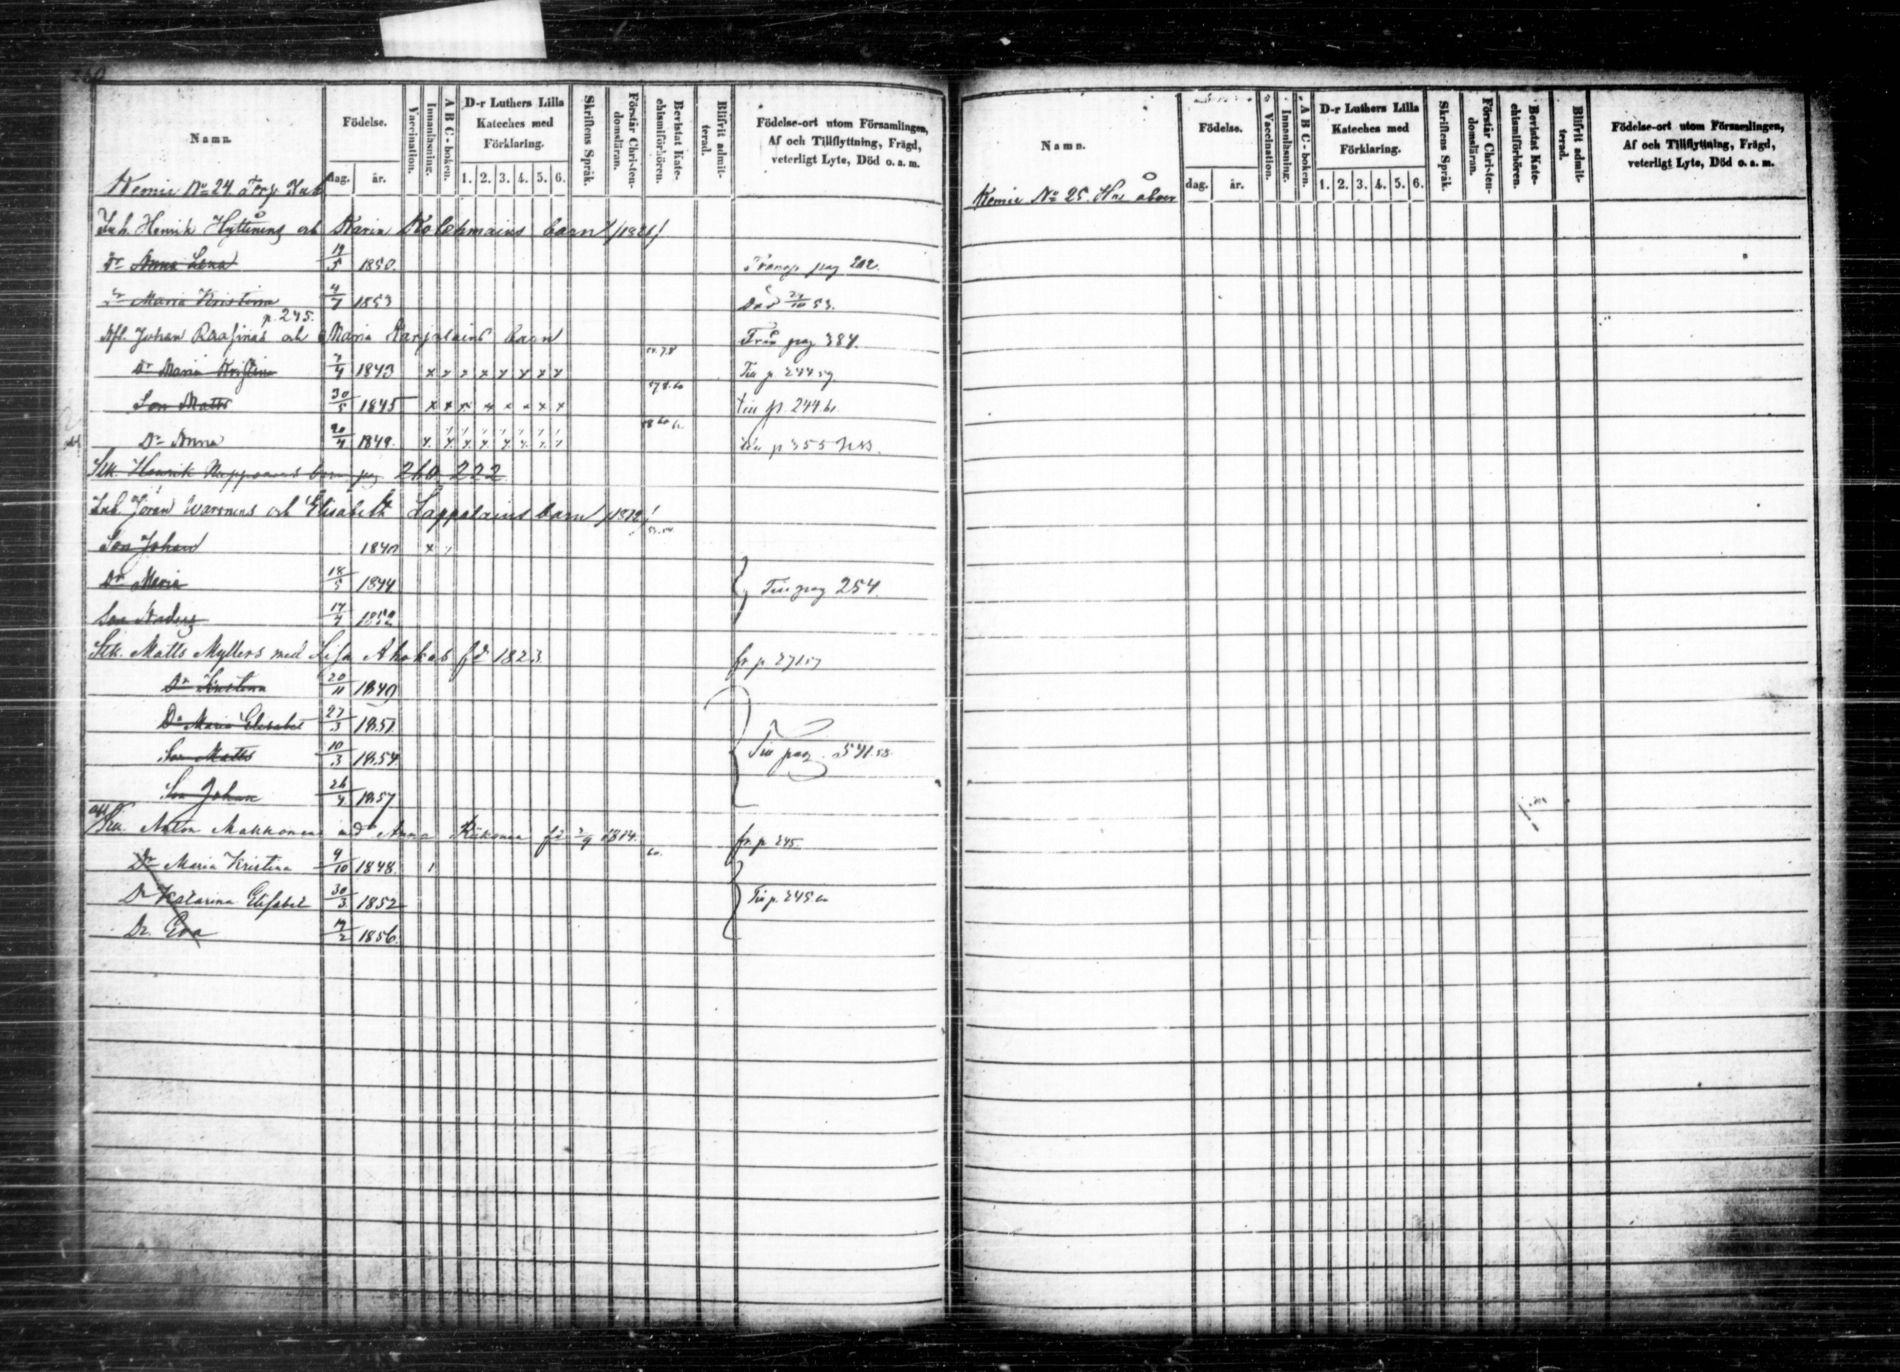 260
Namn.
Födelse.
dag.
år.
Vaccination.
Innanläsning.
A B C-boken.
D-r Luthers Lilla
Kateches med
Förklaring.
1. 2. 3. 4. 5. 6.
Skriftens Språk.
Förstår Christen-
domsläran.
Bevistat Kate-
chismiförhören.
Blifvit admit-
terad.
Födelse-ort utom Församlingen,
Af och Tillflyttning, Frägd,
veterligt Lyte, Död o. a. m.
No 24
Inh. Henrik Hyttinens och Karin Kolehmains barn /1821/
Dr Anna Lena 19/5 1850. Transp pag 202.
Dr Maria Kristina 4/7 1853 Död 24/10 53.
p. 245.
Johan och Maria Karjalains barn Från pag 384.
Dr Maria Kristina 7/4 1843 x x x x x x x x Till p. 244 59
Son Matts 30/5 1845 x x x x x x x x till p. 244
Dr Anna 20/4 1849. x x x x x x x x p 355
Stk. Henrik barn pag 260 222
Inh. Jöran Waronens och Elisabeth Lappalains barn /1812/
Son Johan 1840 x
Dr Maria 18/5 1844 Till pag 254.
Son Anders 17/4 1852
Stk. Matts Myllers med Lisa Ahokas fd 1823 fr p. 271 57
Dr Kristina 20/11 1849
Dr Maria Elisabet 27/3 1851.
Son Matts 10/3 1854. Till pag. 541. 58.
Son Johan 26/4 1857
Anton Makkonen med Anna fd 2/9 1814. fr. p. 245
60.
Dr Maria Kristina 9/10 1848. 1
Dr Katarina Elisabet 30/3 1852 Till p. 245.
Dr. Eva 1856.
Namn.
Födelse.
dag.
år.
Vaccination.
Innanläsning.
A B C-boken.
D-r Luthers Lilla
Kateches med
Förklaring.
1. 2. 3. 4. 5. 6.
Skriftens Språk.
Förstår Christen-
domsläran.
Bevistat Kate-
chismiförhören.
Blifvit admit-
terad.
Födelse-ort utom Församlingen,
Af och Tillflyttning, Frägd,
veterligt Lyte, Död o. a. m.
No 25